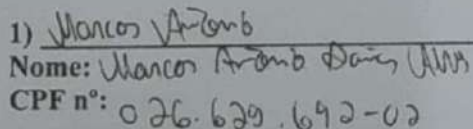 1) Marcos Antonio
Nome: Marcos Antonio Alves
CPF nº: 026.629.692-02